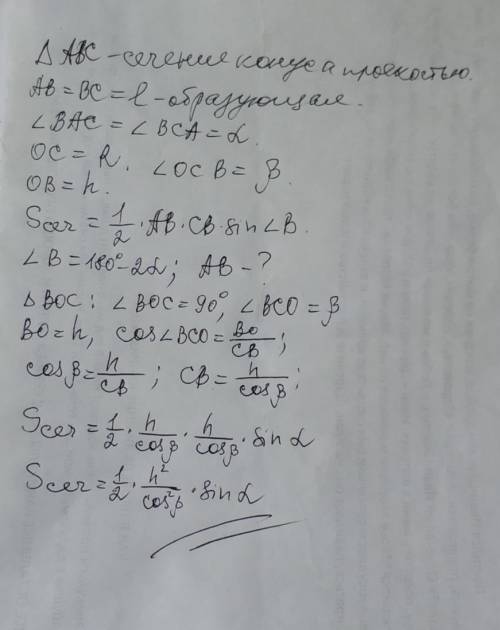 Δ ABC - сечение конуса проскостью.
AB = BC = l - образующая.
∠BAC = ∠BCA = α.
OC = R. ∠OCB = β.
OB = h.
Sсеч = 1/2 · AB · CB · sin∠B.
∠B = 180° - 2α; AB - ?
Δ BOC: ∠BOC = 90°, ∠BCO = β
BO = h, cos∠BCO = BO/CB;
cosβ = h/CB; CB = h/cosβ;
Sсеч = 1/2 · h/cosβ · h/cosβ · sin α
Sсеч = 1/2 · h²/cos²β · sin α